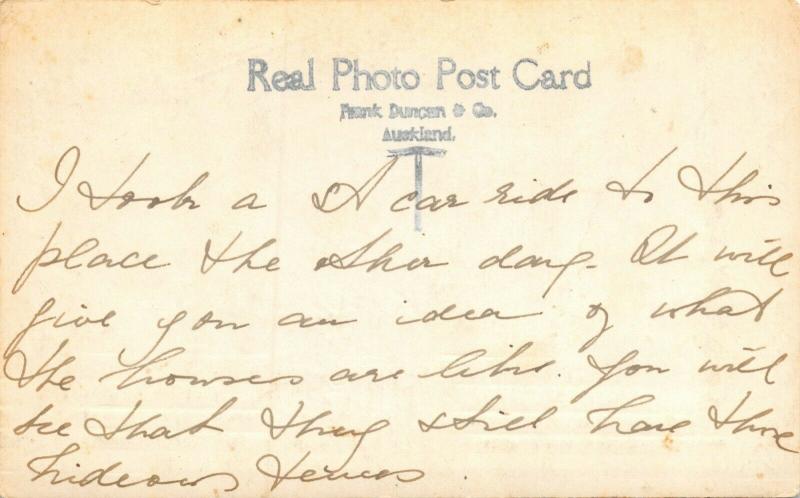 Real Photo Post Card
Frank Duncan & Co.
Auckland.
I took a st car ride to this
place the other day. It will
give you an idea of what
the houses are like. You will
see that they still have those
hideous fences